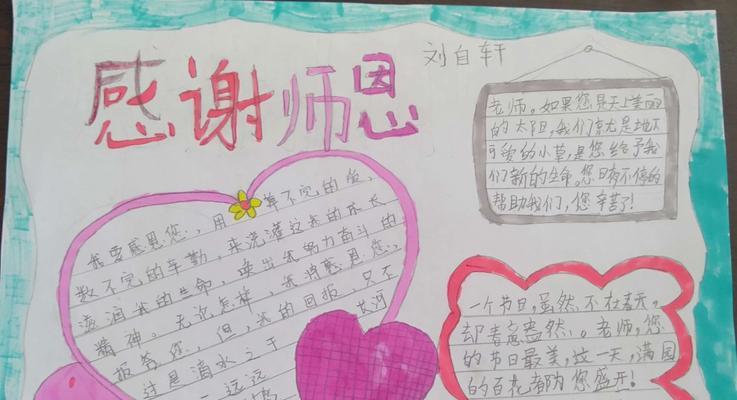 感谢师恩
刘自轩
老师。如果您是天上美丽
的太阳，我们就是地下
可爱的小草，是您给予我
们新的生命。您日夜不停的
帮助我们，您辛苦了！
我要感恩您，用算不完的爱，
数不完的辛勤，来浇灌这我的成长
滋润我的生命，唤出我努力奋斗的
精神。无论怎样，我将感恩您，
报答您，但，我的回报，只不
过是滴水之于长河
一远远
一个节日，虽然不在春天。
却春意盎然。老师，您
的节日最美，这一天，满园
的百花都为您盛开！